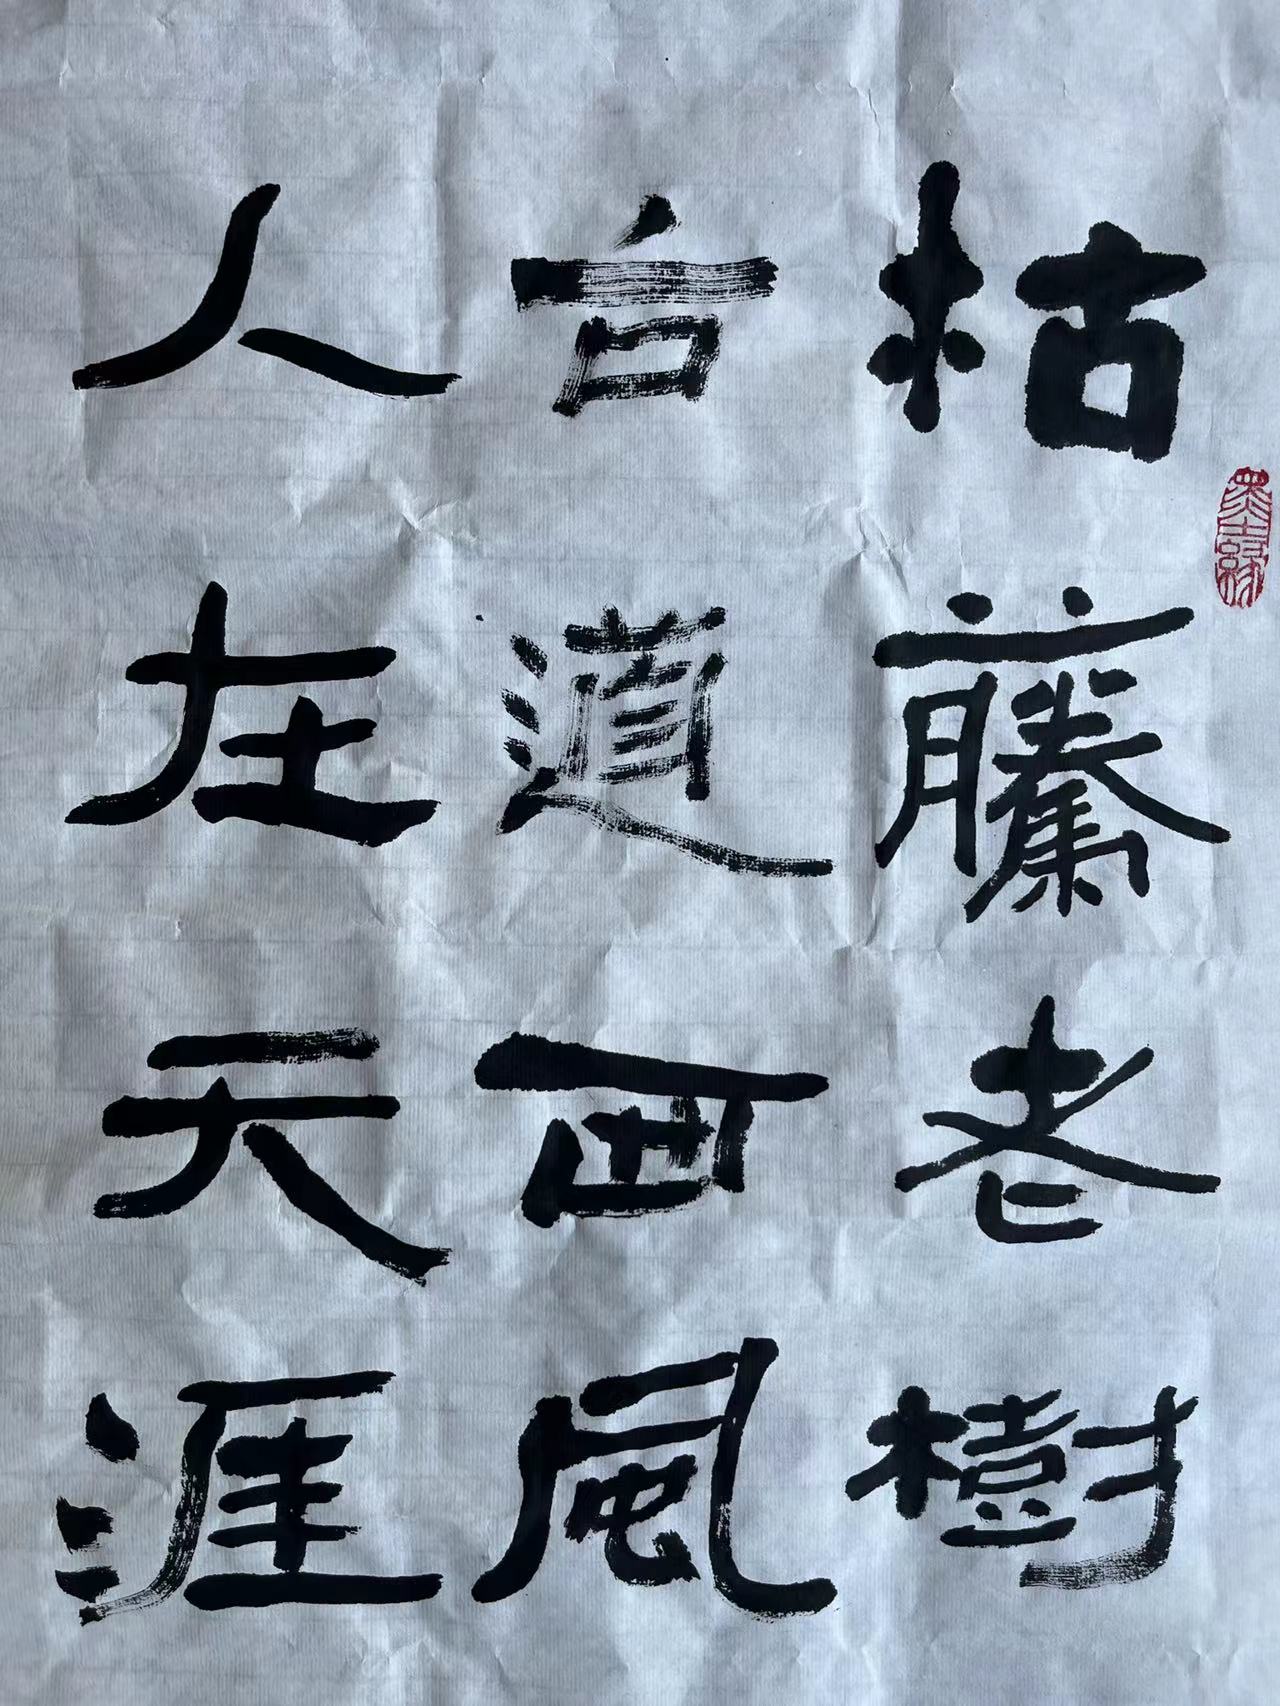 枯藤老樹
古道西風
人在天涯
墨緣